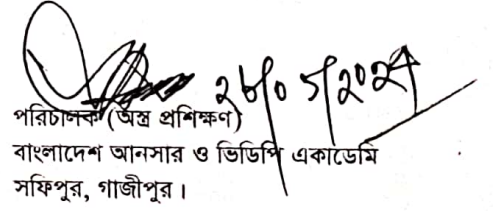 পরিচালক (অস্ত্র প্রশিক্ষণ)
বাংলাদেশ আনসার ও ভিডিপি একাডেমি
সফিপুর, গাজীপুর।